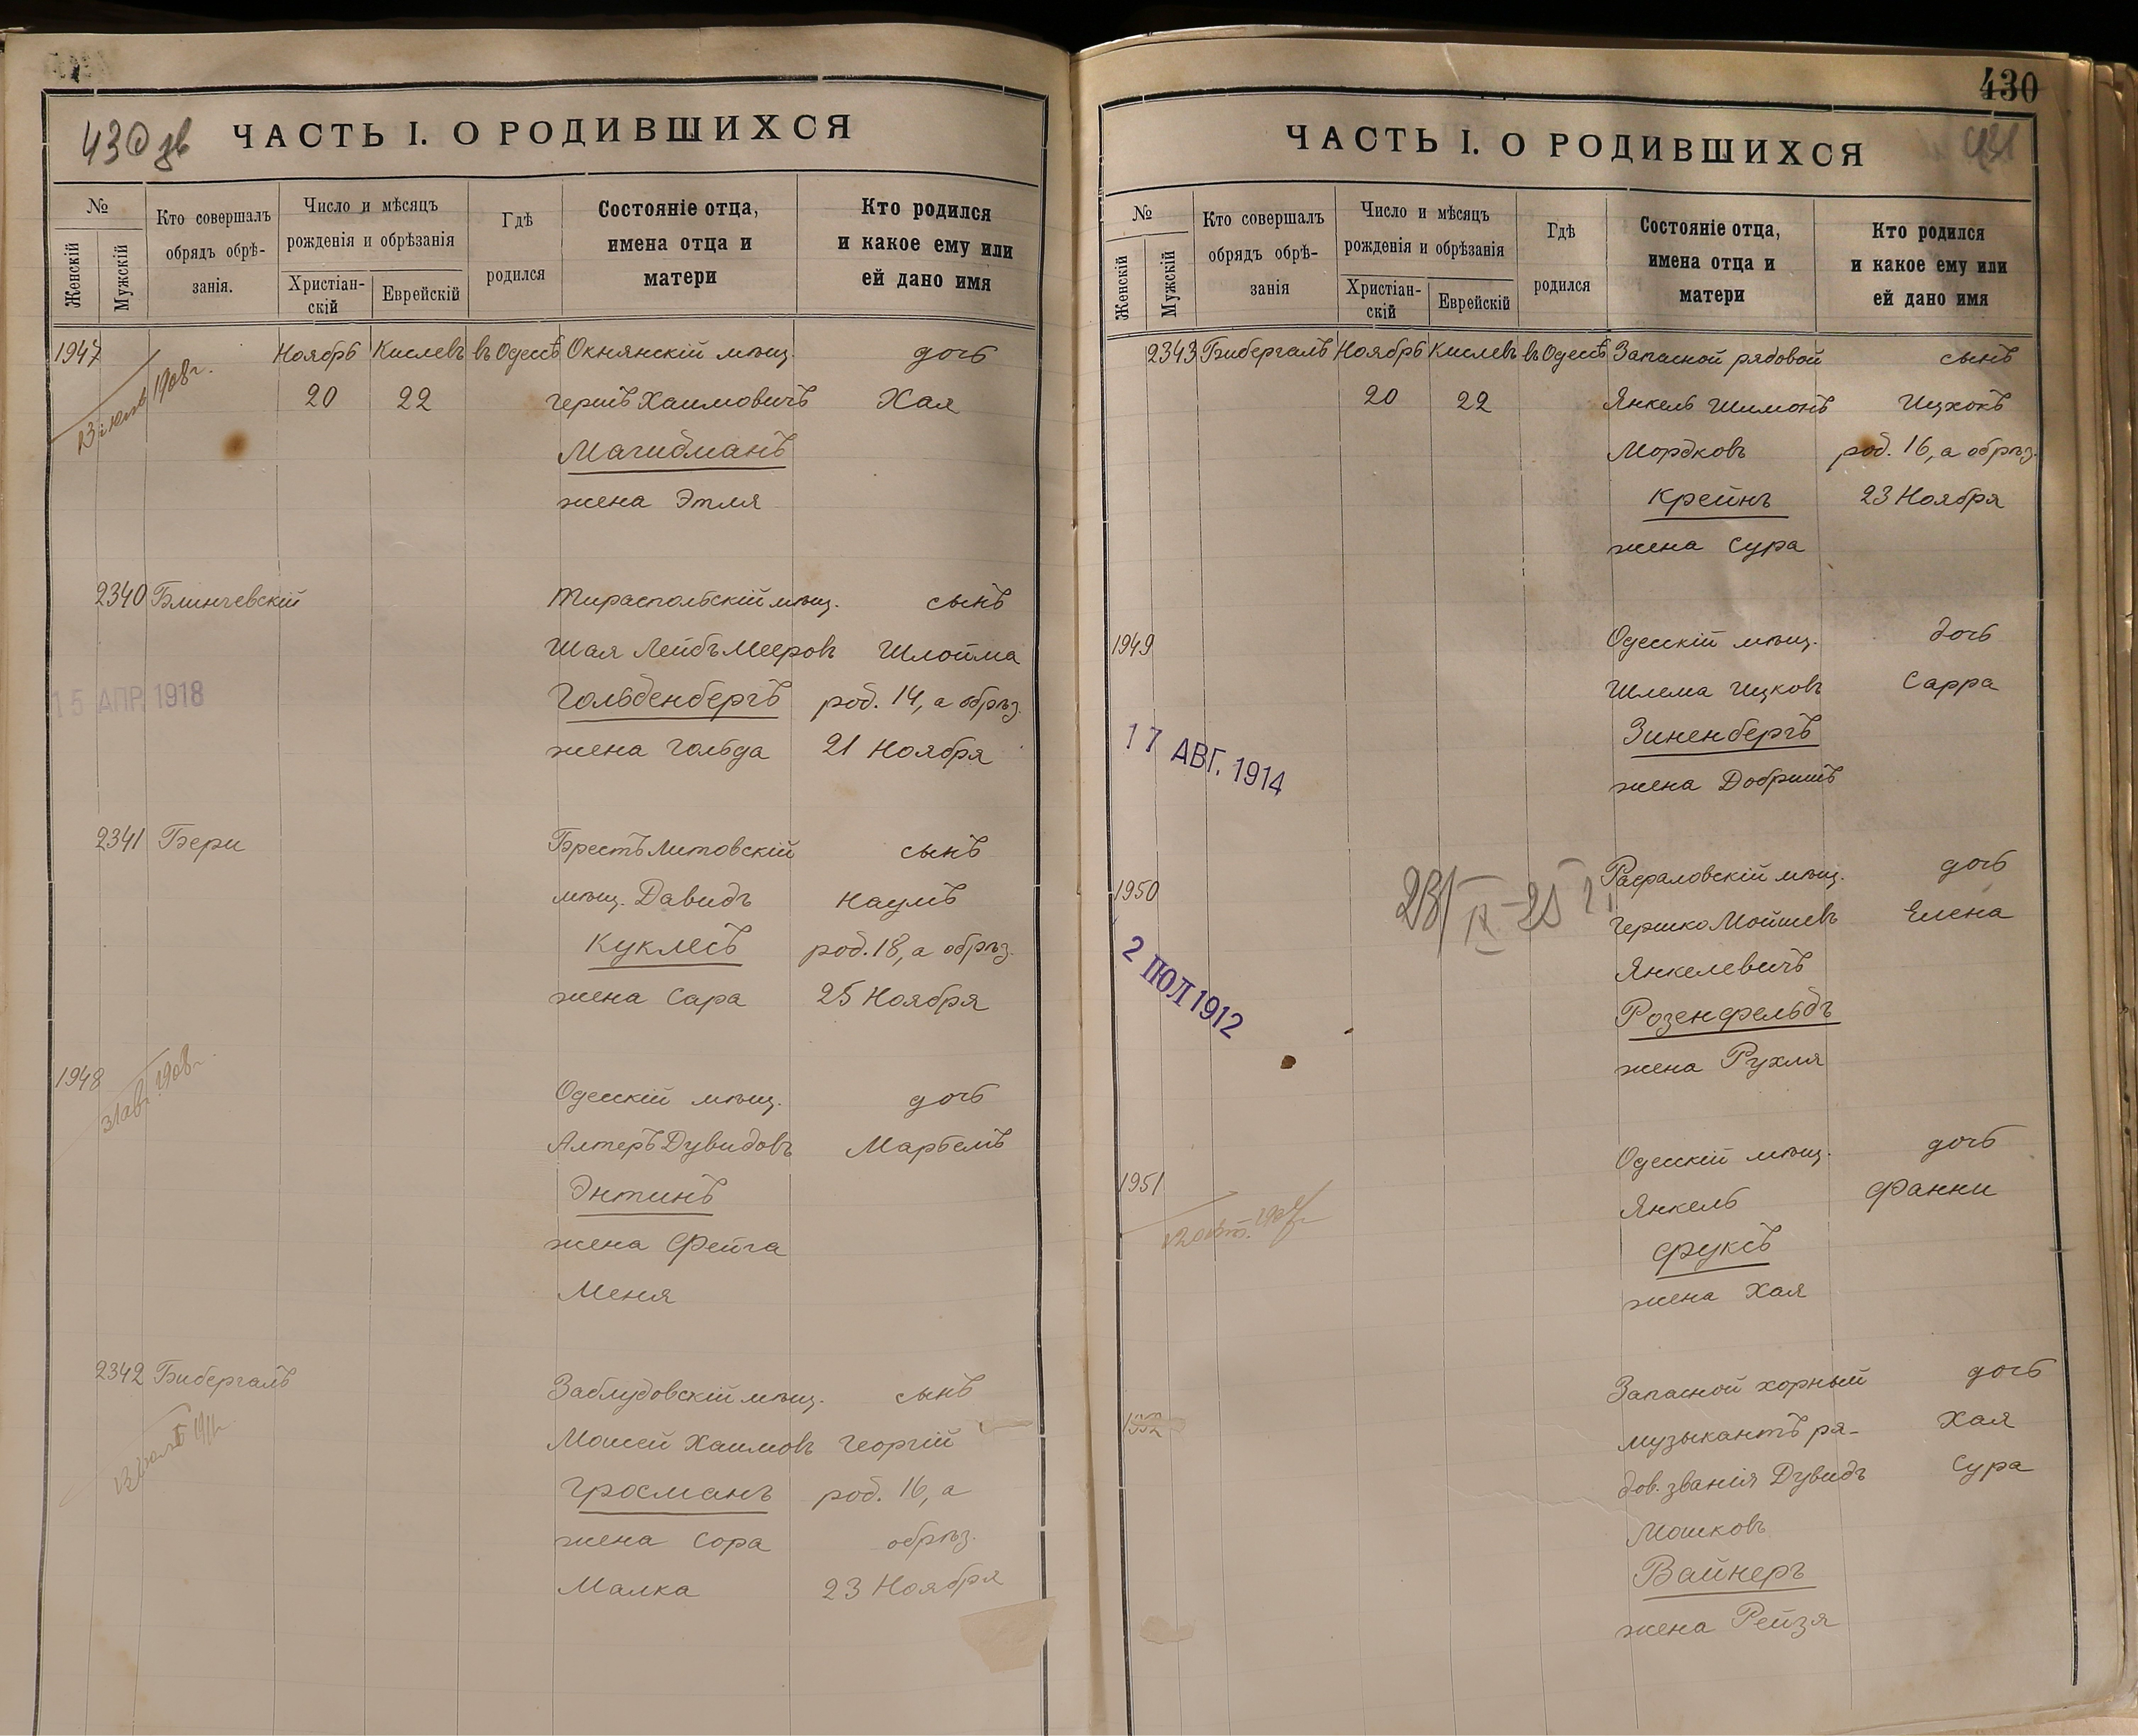 430 зв
ЧАСТЬ I. О РОДИВШИХСЯ
№
Женскій
Мужскій
Кто совершалъ
обрядъ обрѣ-
занія.
Число и мѣсяцъ
рожденія и обрѣзанія
Христіан-
скій
Еврейскій
Гдѣ
родился
Состояніе отца,
имена отца и
матери
Кто родился
и какое ему или
ей дано имя
1947 Ноябрь Кислевъ въ Одессѣ Окнянскій мѣщ. дочь
20 22 Гершъ Хаимовичъ Хая
1908 г.
Магидманъ
жена Этля
2340 Блинчевскій Тираспольскій мѣщ. сынъ
Шая Лейбъ Мееровъ Шлойма
15 АПР. 1918
Гольденбергъ род. 14, а обрѣз.
жена Гольда 21 Ноября
2341 Бери Брестъ Литовскій сынъ
мѣщ. Давидъ Наумъ
Куклесъ род. 18, а обрѣз.
жена Сара 25 Ноября
1948 Одесскій мѣщ. дочь
31 авг. 1908 г.
Алтеръ Дувидовъ Марьемъ
Энтинъ
жена Фейга
Меня
2342 Бибергалъ Заблудовскій мѣщ. сынъ
Моисей Хаимовъ Георгій
1911 г.
Гросманъ род. 16, а
жена Сора обрѣз.
Малка 23 Ноября
430
431
ЧАСТЬ I. О РОДИВШИХСЯ
№
Женскій
Мужскій
Кто совершалъ
обрядъ обрѣ-
занія
Число и мѣсяцъ
рожденія и обрѣзанія
Христіан-
скій
Еврейскій
Гдѣ
родился
Состояніе отца,
имена отца и
матери
Кто родился
и какое ему или
ей дано имя
2343 Бибергалъ Ноябрь Кислевъ въ Одессѣ Запасной рядовой сынъ
20 22 Янкель Шимонъ Ицхокъ
Мордковъ род. 16, а обрѣз.
Крейнъ 23 Ноября
жена Сура
1949 Одесскій мѣщ. дочь
Шлема Ицковъ Сарра
17 АВГ. 1914
Зиненбергъ
жена Добришъ
1950 Рафаловскій мѣщ. дочь
23/IX-25 г.
Гершко Мойшевъ Елена
2 ІЮЛ 1912
Янкелевичъ
Розенфельдъ
жена Рухля
1951 Одесскій мѣщ. дочь
Янкель Фанни
Фуксъ
жена Хая
1952 Запасной хорный дочь
музыкантъ ря- Хая
дов. званія Дувидъ Сура
Мошковъ
Вайнеръ
жена Рейзя